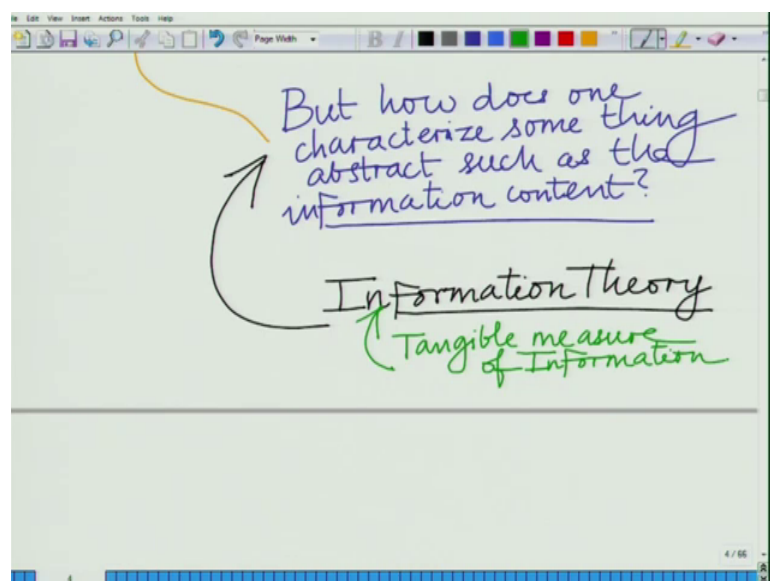 le Edit View Insert Actions Tools Help
Page Width
B I
But how does one
characterize some thing
abstract such as the
information content?
Information Theory
Tangible measure
of Information
4 / 66
4